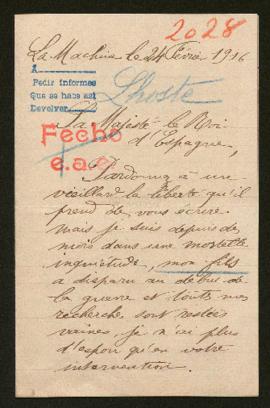 2028
La Machine le 24 Février 1916
A
Pedir informes
Que se hace así
Devolver
Lhoste
Sa Majesté le Roi
d'Espagne,
Fecho
Pardonnez à un
vieillard la liberté qu'il
prend de vous écrire
mais je suis depuis des
mois dans une mortelle
inquiétude, mon fils
a disparu au début de
la guerre et toutes mes
recherches sont restées
vaines, je n'ai plus
d'espoir qu'en votre
intervention.